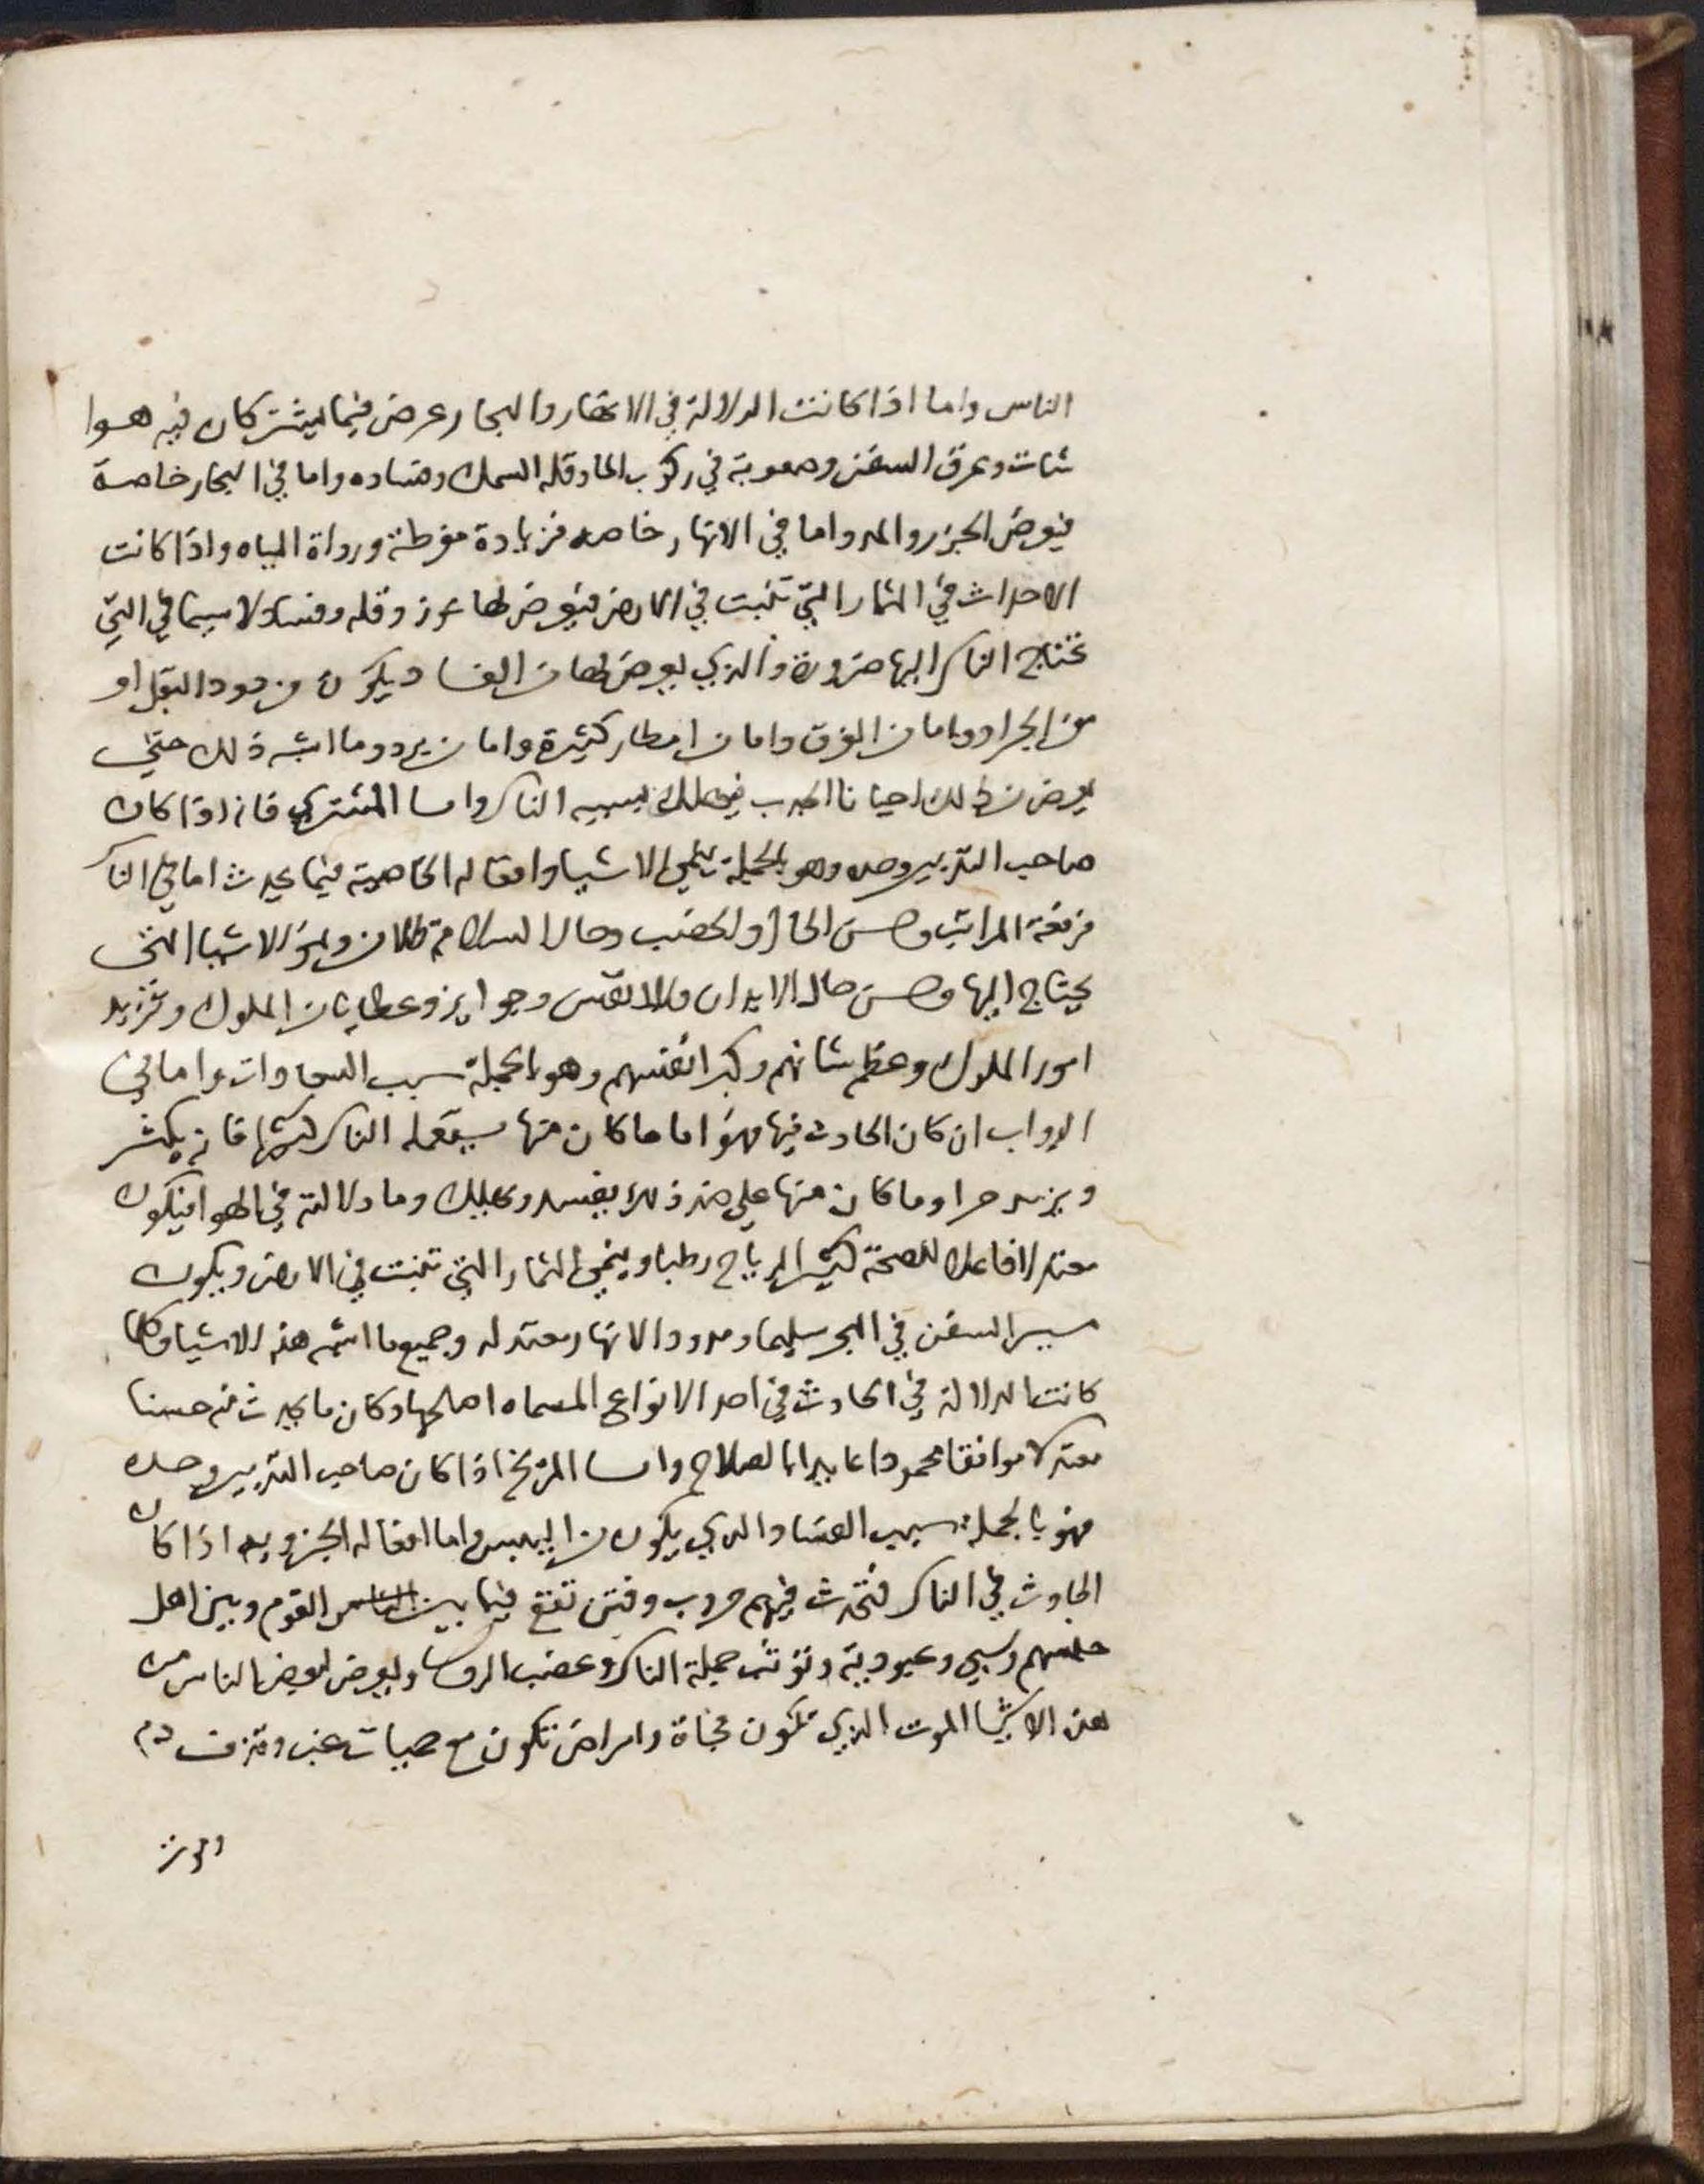 الناس واما اذا كانت الدلالة في الانهار والبحار عرض فيما يشتركان فيه هوا
شات وغرق السفن وصعوبة في ركوب الما وقله السمك وفساده واما في البحار خاصة
فيعرض الجزر والمد واما في الانهار خاصه فزيادة مفرطة ورداة المياه واذا كانت
الاحداث في الثمار التي تنبت في الارض فيعرض لها عوز وقله وفساد لا سيما في التي
تحتاج الناس اليها ضرورة والذي يعرض لها من الفساد يكون من دود البقل او
من الجراد واما من الغرق واما من امطار كثيرة واما من برد وما اشبه ذلك حتى
يعرض من ذلك احيانا الجدب فيهلك بسببه الناس واما المشتري فانه اذا كان
صاحب التدبير وحده وهو بالجملة ينمي الاشيا وافعاله الخاصية فيما يحدث اما في الناس
فرفعة المراتب وحسن الحال والخصب وحال السلامة ونمو الاشيا التي
يحتاج اليها وحسن حال الابدان والانفس وجوايز وعطايا من الملوك وتزيد
امور الملوك وعظم شانهم وكبر انفسهم وهو بالجملة سبب السعادات واما في
الدواب ان كان الحادث فيها فهو اما ما كان منها يستعمله الناس كثيرا فانه يكثر
ويزيد جدا وما كان منها على ضد ذلك يفسد ويهلك وما دلالته في الهوا فيكون
معتدلا فاعلا للصحة كثير الرياح رطبا وينمي الثمار التي تنبت في الارض ويكون
مسير السفن في البحر سليما ومدود الانهار معتدله وجميع ما اشبه هذه الاشيا وكلما
كانت الدلالة في الحادث في احد الانواع المسماه اصلحها وكان ما يحدث منه حسنا
معتدلا موافقا محمودا عايدا بالصلاح واما المريخ اذا كان صاحب التدبير وحده
فهو بالجملة سبب الفساد الذي يكون من اليبس واما افعاله الجزويه اذا كان
الحادث في الناس فتحدث فيهم حروب وفتن تقع فيما بين الناس القوم وبين اهل
وسبي وعبودية وتوثب جملة الناس وغضب الروسا ويعرض لبعض الناس من
هذه الاشيا الموت الذي تكون فجاة وامراض تكون مع حميات غب ونزف دم